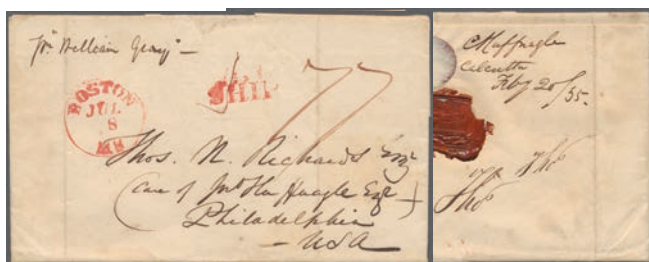 pr "William Gray" —
SHIP
77
BOSTON
JUL
8
MS
Thos. N. Richards Esq
(care of Huffnagle Esq)
Philadelphia
— USA
CHuffnagle
Calcutta
Feby 20/55.
Tho
Tho